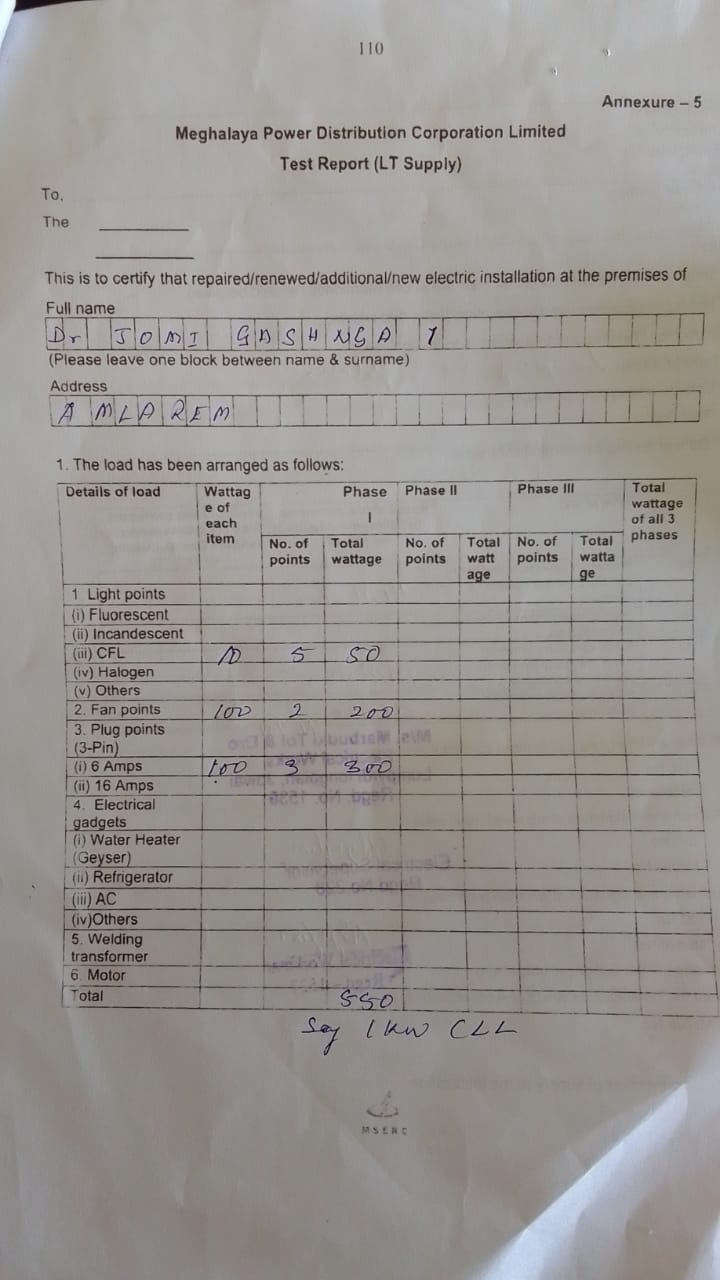 110
Annexure – 5
Meghalaya Power Distribution Corporation Limited
Test Report (LT Supply)
To,
The
This is to certify that repaired/renewed/additional/new electric installation at the premises of
Full name
Dr JOMI GASHNGA 1
(Please leave one block between name & surname)
Address
AMLAREM
1. The load has been arranged as follows:
Details of load Wattag e of each item Phase I Phase II Phase III Total wattage of all 3 phases
No. of points Total wattage No. of points Total watt age No. of points Total watta ge
1 Light points
(i) Fluorescent
(ii) Incandescent
(iii) CFL 10 5 50
(iv) Halogen
(v) Others
2. Fan points 100 2 200
3. Plug points
(3-Pin)
(i) 6 Amps 100 3 300
(ii) 16 Amps
4. Electrical
gadgets
(i) Water Heater
(Geyser)
(ii) Refrigerator
(iii) AC
(iv)Others
5. Welding
transformer
6. Motor
Total 550
Say 1 KW CLL
MSERC